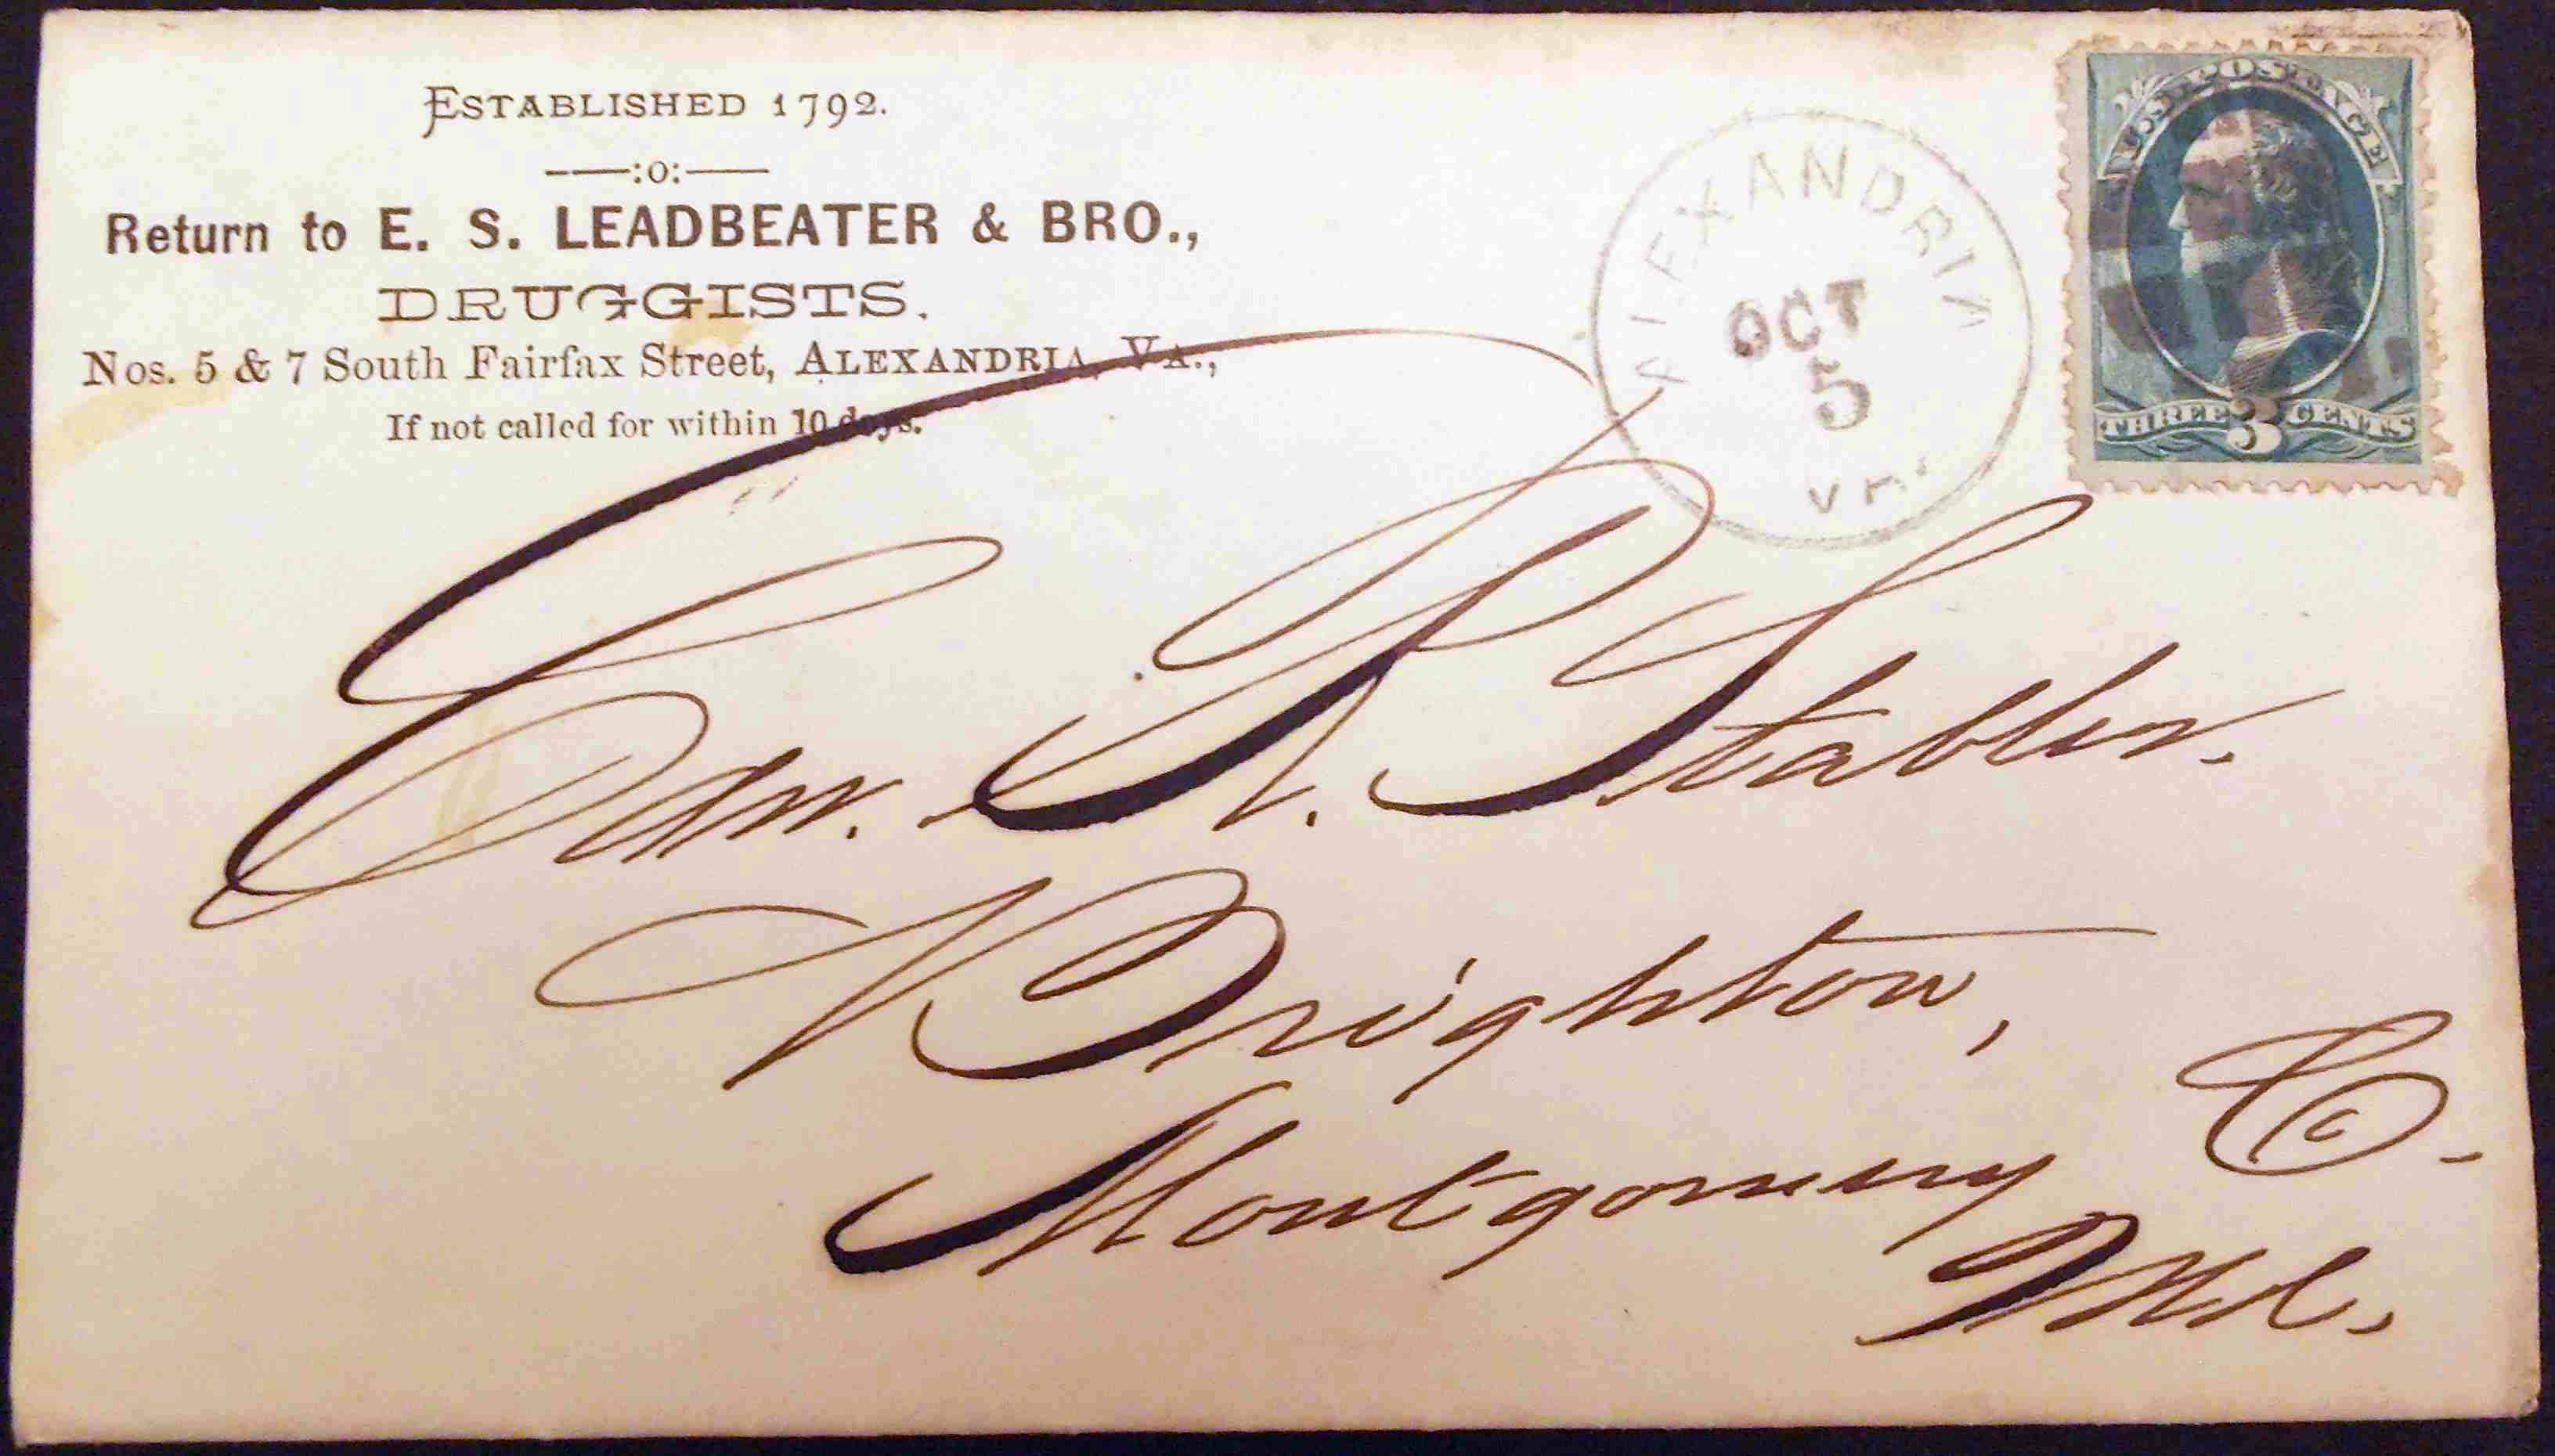 ESTABLISHED 1792.
——:o:——
Return to E. S. LEADBEATER & BRO.,
DRUGGISTS.
Nos. 5 & 7 South Fairfax Street, ALEXANDRIA, VA.,
If not called for within 10 days.
ALEXANDRIA
OCT
5
VA.
U.S. POSTAGE
THREE 3 CENTS
Edw. R. Stabler.
Brighton,
Montgomery Co.
Md.